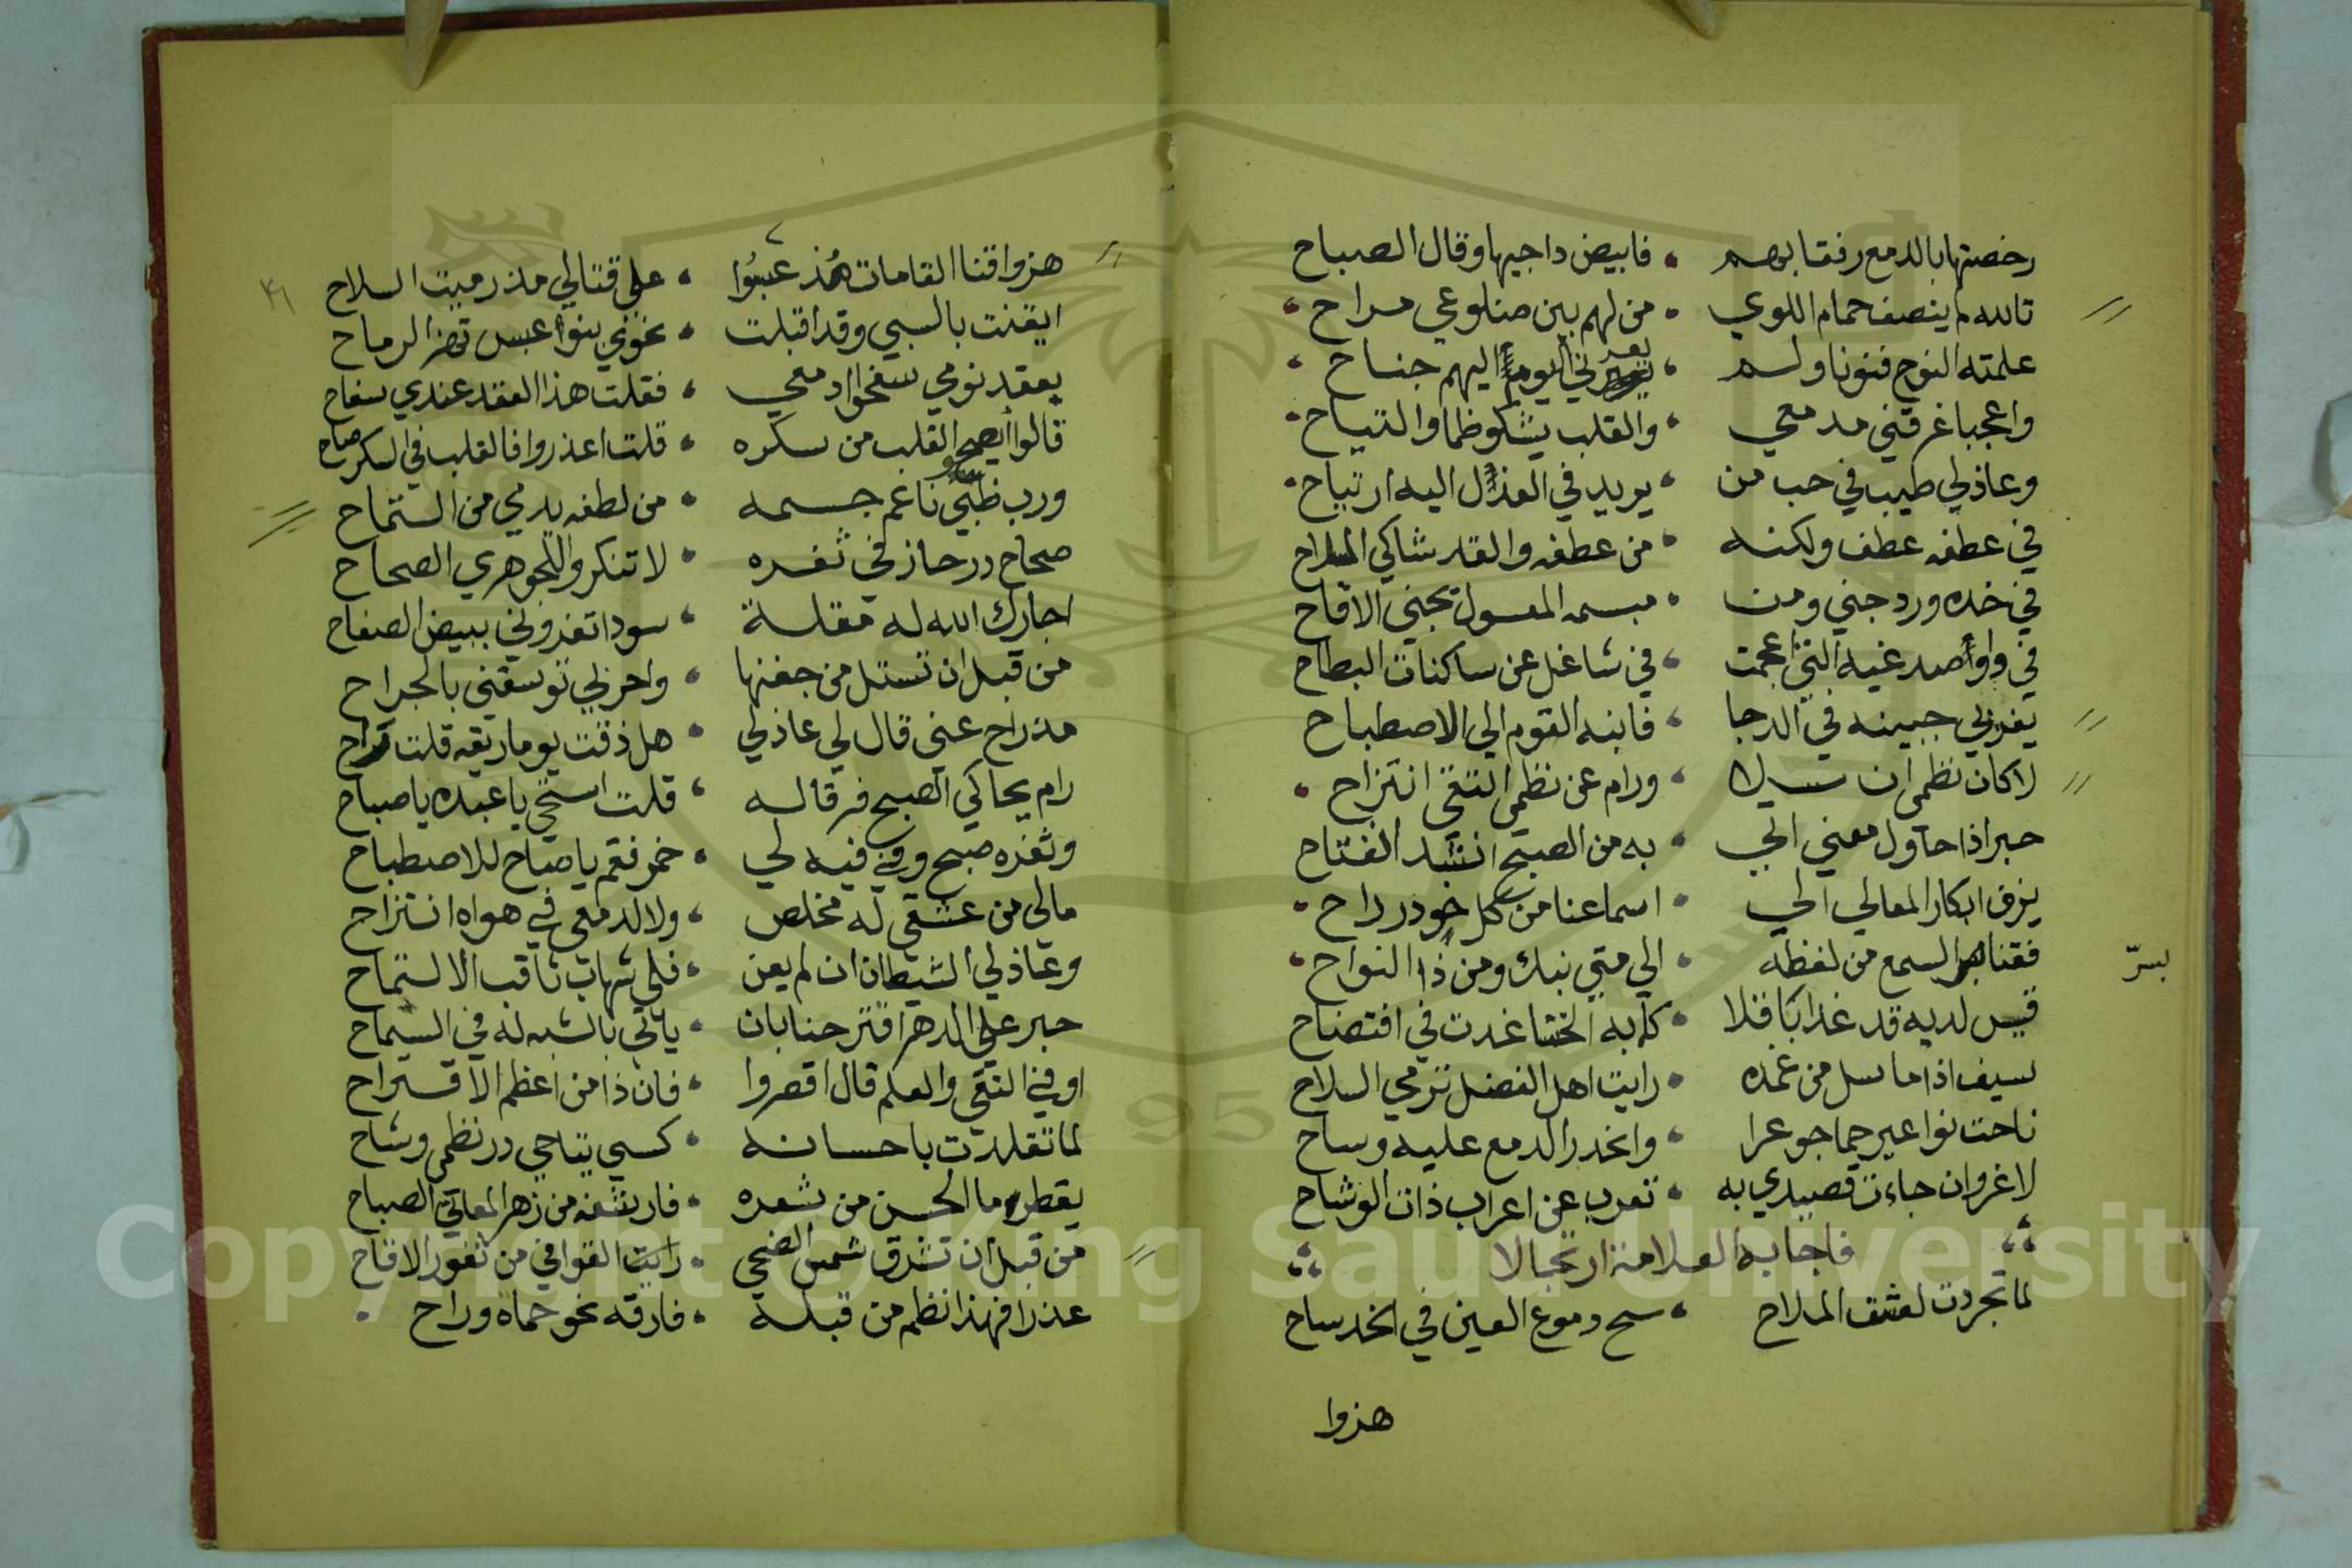 رخصتها بالدمع رفقا بهم • فابيض داجيها وقال الصباح
تالله لم ينصف حمام اللوي • من لهم بين ضلوعي مراح
علمته النوح فنونا ولم • يعد ني اليوم اليهم جناح
واعجبا غرقني مدمعي • والقلب يشكو ظما والتياح
وعاذلي طيب في حب من • يريد في العذل اليه ارتياح
في عطفه عطف ولكنه • من عطفه والقد شاكي السلاح
في خده ورد جني ومن • مبسمه المعسول تجني الاقاح
في واو صدغيه التي اعجمت • في شاغل عن ساكنات البطاح
يغرني جبينه في الدجا • فانبه القوم الي الاصطباح
لا كان نظمي ان سلا • ورام عن نظمي التقي انتزاح
حبر اذا حاول معني الي • به من الصبح انشد الفتاح
يزف ابكار المعالي الي • اسماعنا من كل خود رداح
فقنا السمع من لفظه • الي متي نبك ومن ذا النواح
بسر
قيس لديه قد غدا باقلا • كما به الخنسا غدت في افتضاح
سيف اذا ما سل من غمده • رايت اهل الفضل ترمي السلاح
ناحت نواعير حما جوعرا • وانحدر الدمع عليه وساح
لا غروان جاءت قصيدي به • تعرب عن اعراب ذات الوشاح
فاجابه العلامة ارتجالا
لما تجردت لعشق الملاح • سح دموع العين في الخد ساح
هزوا
٤٦
هزوا قنا القامات مذ عبسوا • علي قتالي مذ رميت السلاح
ايقنت بالسبي وقد اقبلت • نحوي بنوا عبس تهز الرماح
بعقد نومي سفحوا دمعي • فقلت هذا العقد عندي سفاح
قالوا ايصحو القلب من سكره • قلت اعذروا فالقلب في السكر صاح
ورب ظبي ناعم جسمه • من لطفه يدمي من التماح
صحاح در حاز في ثغره • لا تنكروا للجوهري الصحاح
اجارك الله له مقلة • سودا تغزوني ببيض الصفاح
من قبل ان تستل من جفنها • واحربي توسقني بالجراح
مذ راح عني قال لي عاذلي • هل ذقت يوما ريقه قلت راح
رام يحاكي الصبح فرقا له • قلت استحي يا عبده يا صباح
وثغره صبح وفي فيه لي • خمر فقم يا صاح للاصطباح
مالي من عشقي له مخلص • ولا لدمعي في هواه انتزاح
وعاذلي الشيطان ان لم يعن • فلي شهاب ثاقب الالتماح
حبر علي الدهر افتر حنا بان • ياتي بالشبه له في السماح
اوفي التقي والعلم قال اقصروا • فان ذا من اعظم الاقتراح
لما تقلدت باحسانه • كسي بتاجي در نظمي وشاح
يقطر ما الحسن من شعره • فارتشفه من زهر المعاني الصباح
من قبل ان تشرق شمس الضحي • رايت القوافي من ثغور الاقاح
عذرا فهذا نظم من قبله • فارقه نحو حماه وراح
Copyright © King Saud University
195